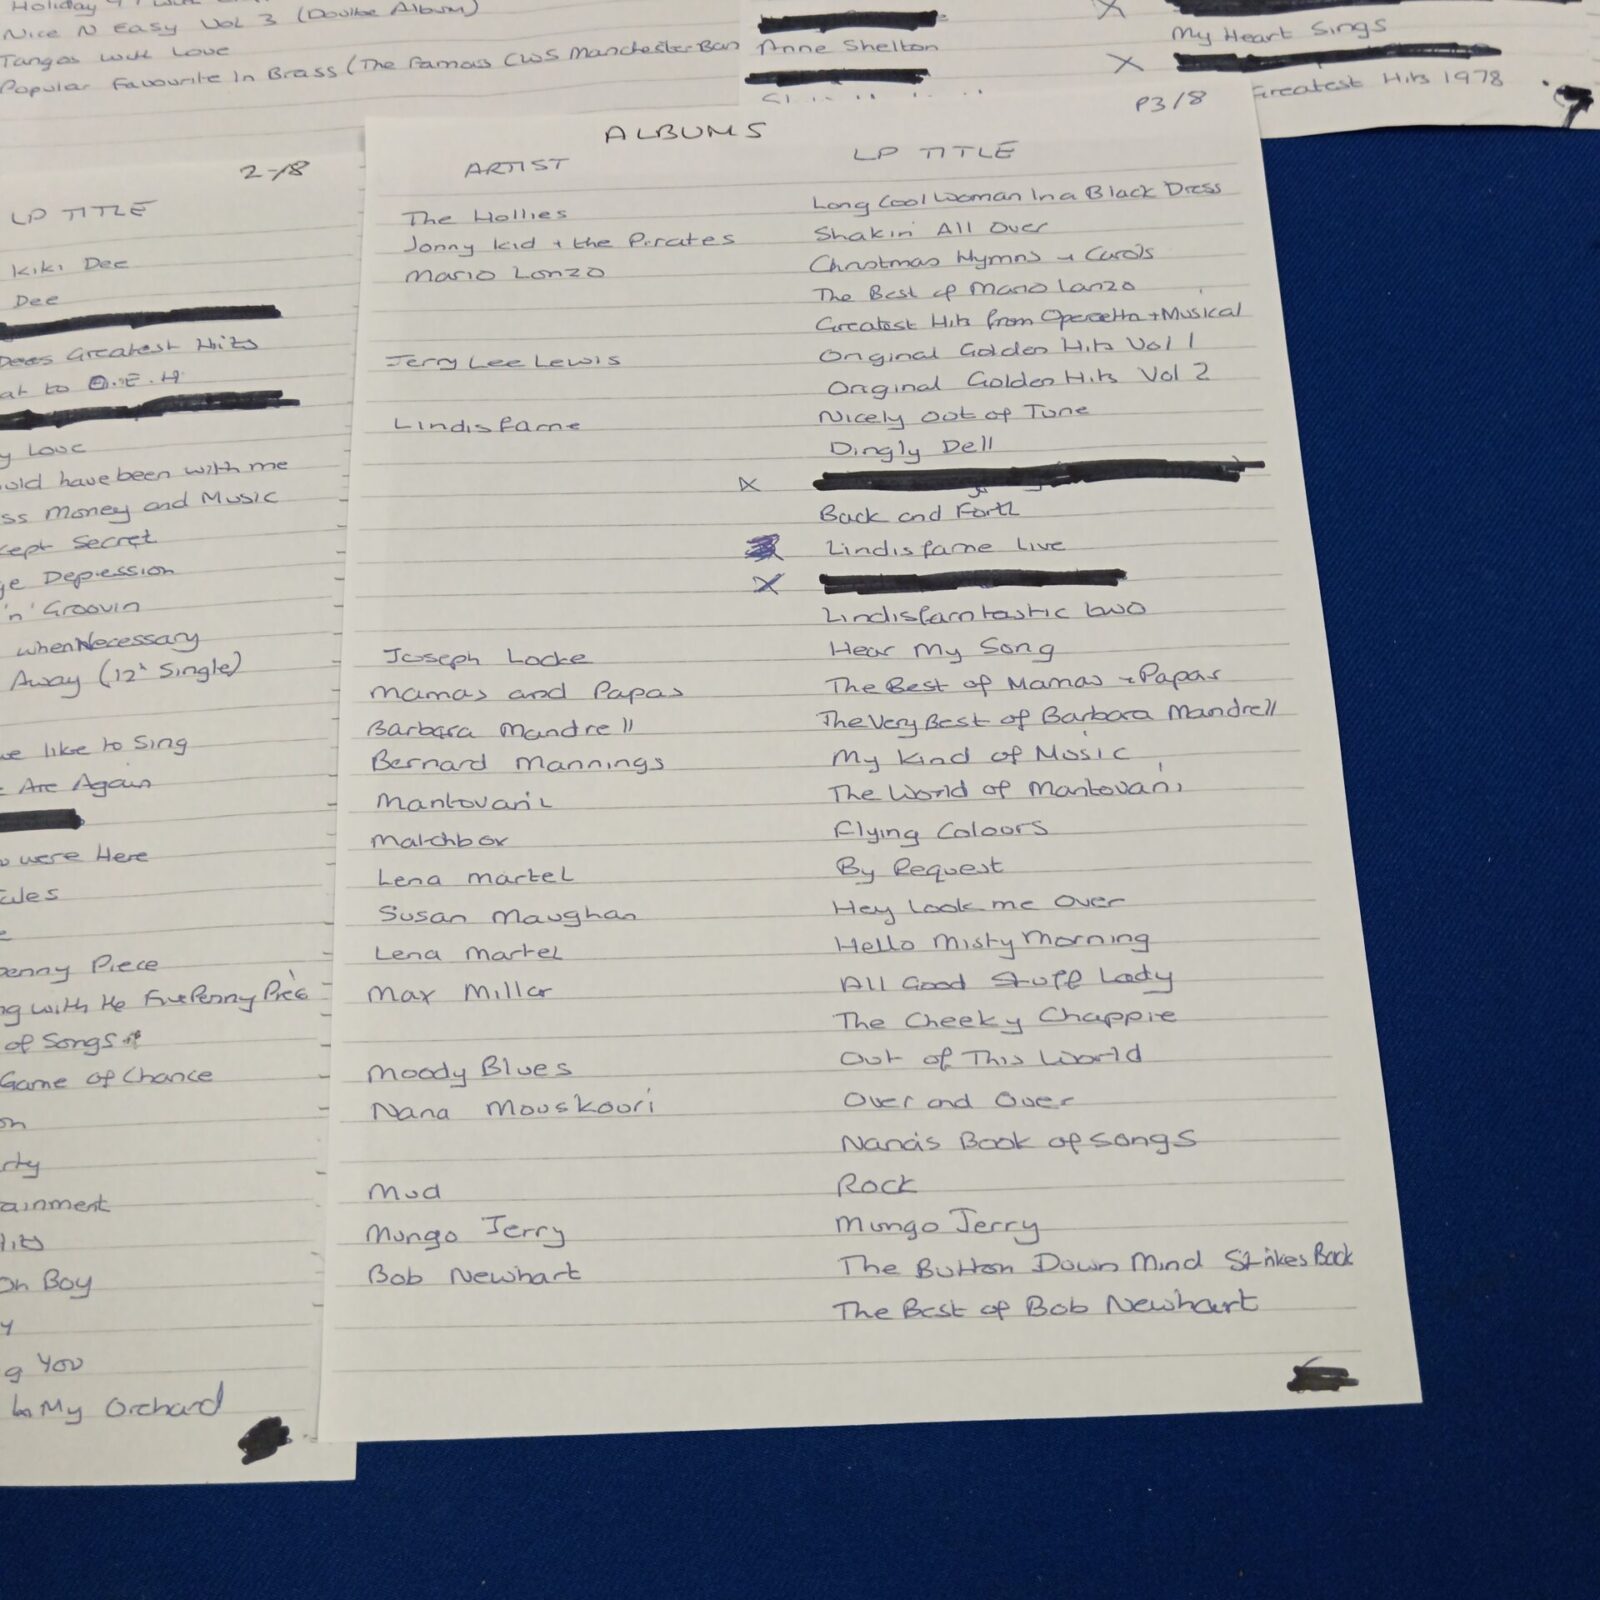 Nice N Easy Vol 3 (Double Album)
Tangos with Love
Popular Favourite In Brass (The Famous CWS Manchester Ban
Anne Shelton
X
My Heart Sings
X
Greatest Hits 1978
2-/8
LP TITLE
Kiki Dee
Dee
Dees Greatest Hits
at to O.E.H
y Love
uld have been with me
ss Money and Music
kept Secret
ge Depression
'n' Groovin
when Necessary
Away (12" Single)
we like to Sing
e Are Again
were Here
ules
enny Piece
ng with the FivePenny Piec
of Songs
Game of Chance
on
rty
ainment
Hits
Oh Boy
y
g You
in My Orchard
P3/8
ALBUMS
ARTIST LP TITLE
The Hollies Long Cool Woman In a Black Dress
Jonny Kid + the Pirates Shakin' All Over
Mario Lonzo Christmas Hymns + Carols
The Best of Mario Lanzo
Greatest Hits from Operetta + Musical
Jerry Lee Lewis Original Golden Hits Vol 1
Original Golden Hits Vol 2
Lindisfarne Nicely Out of Tune
Dingly Dell
X
Back and Forth
Lindisfarne Live
X
Lindisfarntastic two
Joseph Locke Hear My Song
Mamas and Papas The Best of Mamas + Papas
Barbara Mandrell The Very Best of Barbara Mandrell
Bernard Mannings My Kind of Music
Mantovani The World of Mantovani
Matchbox Flying Colours
Lena Martel By Request
Susan Maughan Hey Look me Over
Lena Martel Hello Misty Morning
Max Millar All Good Stuff Lady
The Cheeky Chappie
Moody Blues Out of This World
Nana Mouskouri Over and Over
Nana's Book of Songs
Mud Rock
Mungo Jerry Mungo Jerry
Bob Newhart The Button Down Mind Strikes Back
The Best of Bob Newhart